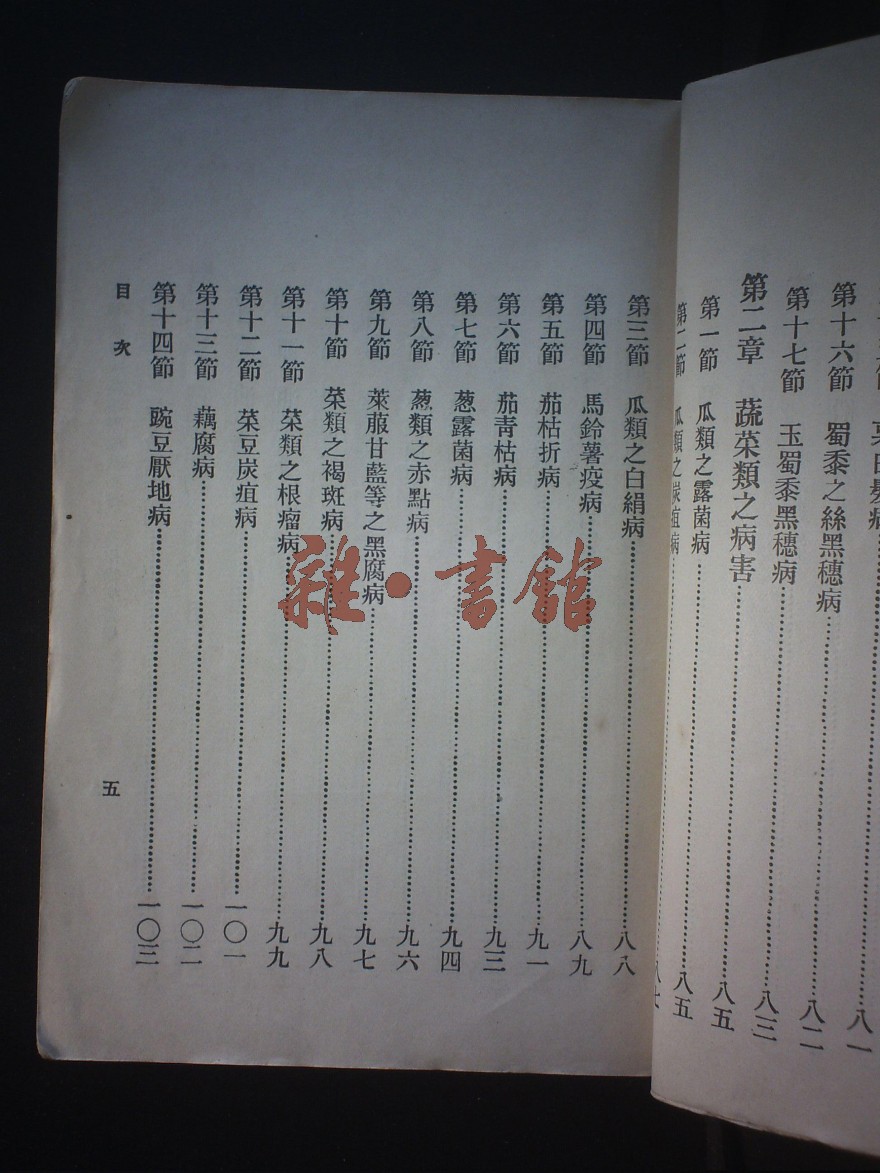 八一
第十六節 蜀黍之絲黑穗病……八二
第十七節 玉蜀黍黑穗病……八三
第二章 蔬菜類之病害……八五
第一節 瓜類之露菌病……八五
第二節 瓜類之炭疽病……八七
第三節 瓜類之白絹病……八八
第四節 馬鈴薯疫病……八九
第五節 茄枯折病……九一
第六節 茄青枯病……九三
第七節 葱露菌病……九四
第八節 葱類之赤點病……九六
第九節 萊菔甘藍等之黑腐病……九七
第十節 菜類之褐斑病……九八
第十一節 菜類之根瘤病……九九
第十二節 菜豆炭疽病……一〇一
第十三節 藕腐病……一〇二
第十四節 豌豆厭地病……一〇三
目次
五
雜·書館